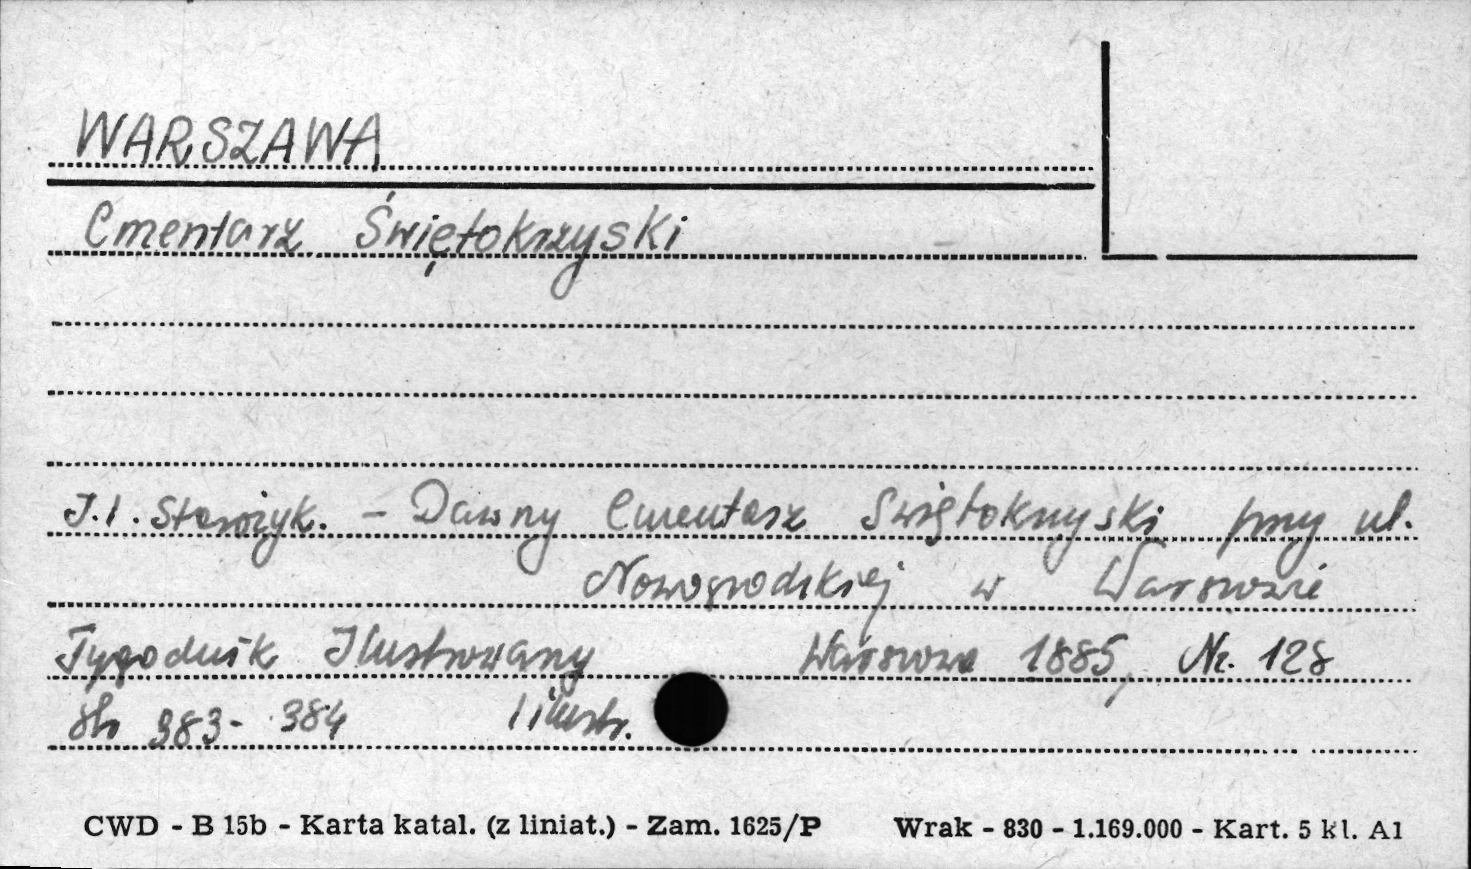 WARSZAWA
Cmentarz Świętokrzyski
J.I. Starożyk. - Dawny Cmentarz Świętokrzyski przy ul.
Nowogrodzkiej w Warszawie
Tygodnik Ilustrowany Warszawa 1885, Nr. 128
str 383- 384 1 ilustr.
CWD - B 15b - Karta katal. (z liniat.) - Zam. 1625/P Wrak - 830 - 1.169.000 - Kart. 5 kl. A1